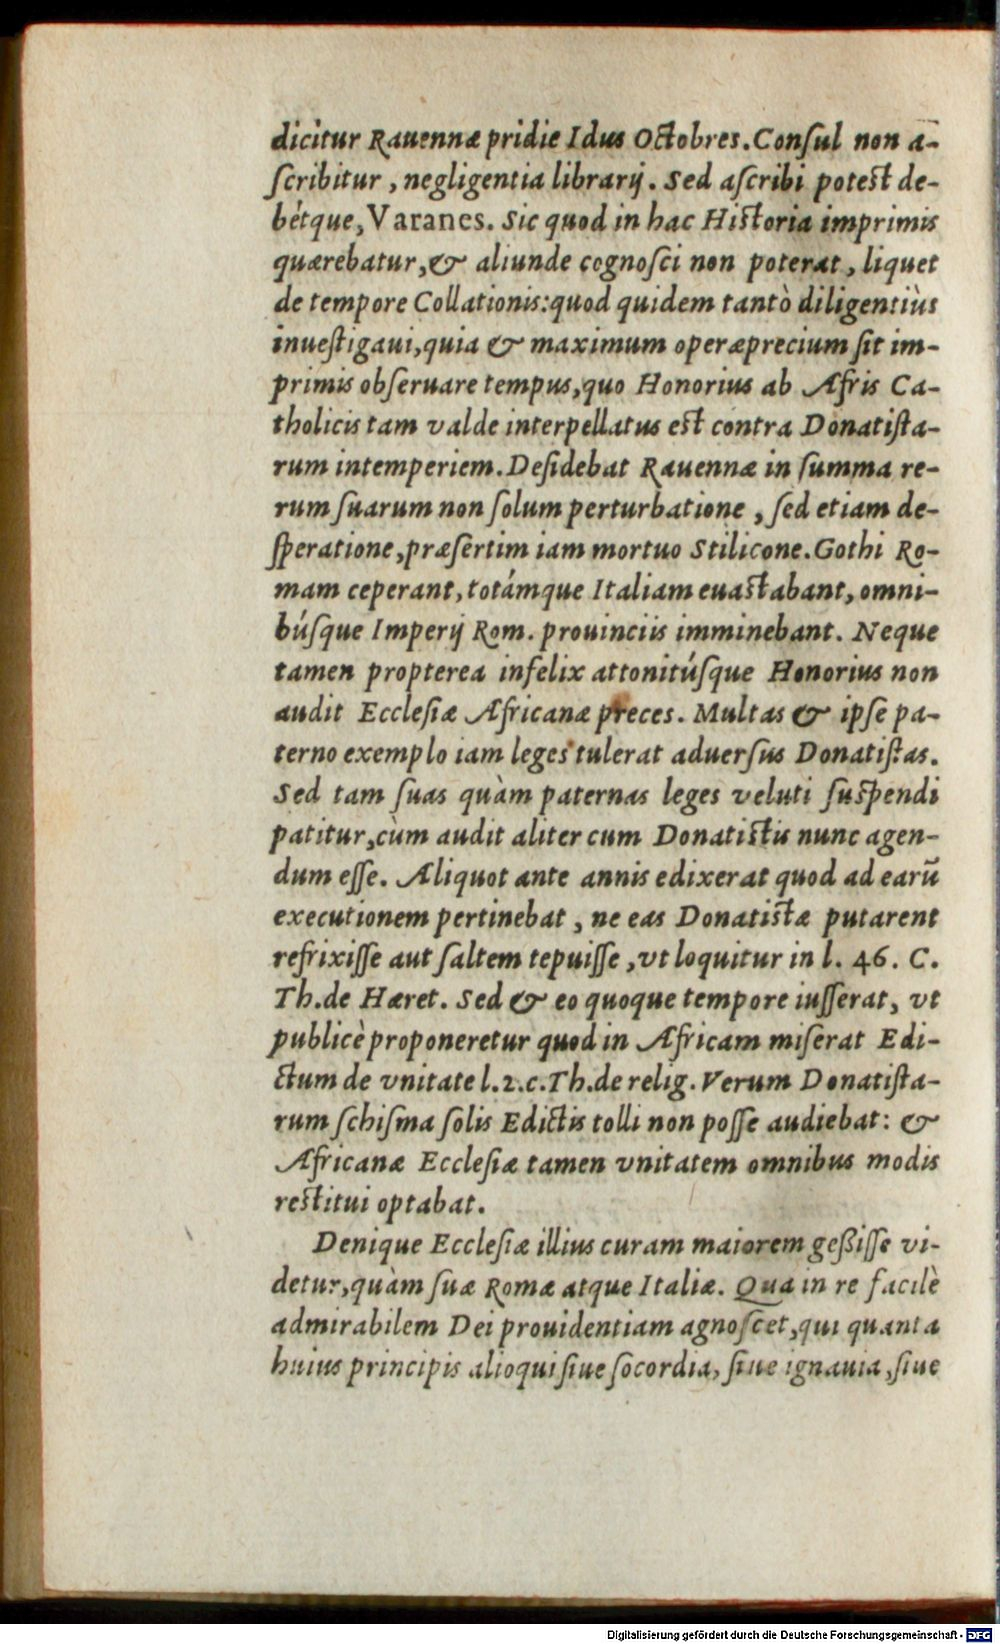 dicitur Rauennæ pridie Idus Octobres. Consul non a-
ſcribitur, negligentia librarij. Sed aſcribi potest de-
bétque, Varanes. Sic quod in hac Historia imprimis
quærebatur, & aliunde cognoſci non poterat, liquet
de tempore Collationis: quod quidem tantò diligentiùs
inueſtigaui, quia & maximum operæprecium ſit im-
primis obſeruare tempus, quo Honorius ab Afris Ca-
tholicis tam valde interpellatus est contra Donatiſta-
rum intemperiem. Deſidebat Rauennæ in ſumma re-
rum ſuarum non ſolum perturbatione, ſed etiam de-
ſperatione, præſertim iam mortuo Stilicone. Gothi Ro-
mam ceperant, totámque Italiam euastabant, omni-
búſque Imperij Rom. prouinciis imminebant. Neque
tamen propterea infelix attonitúſque Honorius non
audit Eccleſiæ Africanæ preces. Multas & ipſe pa-
terno exemplo iam leges tulerat aduerſus Donatiſtas.
Sed tam ſuas quàm paternas leges veluti ſuſpendi
patitur, cùm audit aliter cum Donatistis nunc agen-
dum eſſe. Aliquot ante annis edixerat quod ad earū
executionem pertinebat, ne eas Donatistæ putarent
refrixiſſe aut ſaltem tepuiſſe, vt loquitur in l. 46. C.
Th. de Hæret. Sed & eo quoque tempore iuſſerat, vt
publicè proponeretur quod in Africam miſerat Edi-
ctum de vnitate l.2.c.Th.de relig. Verum Donatiſta-
rum ſchiſma ſolis Edictis tolli non poſſe audiebat: &
Africanæ Eccleſiæ tamen vnitatem omnibus modis
restitui optabat.
Denique Eccleſiæ illius curam maiorem geßiſſe vi-
detur, quàm ſuæ Romæ atque Italiæ. Qua in re facilè
admirabilem Dei prouidentiam agnoſcet, qui quanta
huius principis alioqui ſiue ſocordia, ſiue ignauia, ſiue
Digitalisierung gefördert durch die Deutsche Forschungsgemeinschaft - DFG